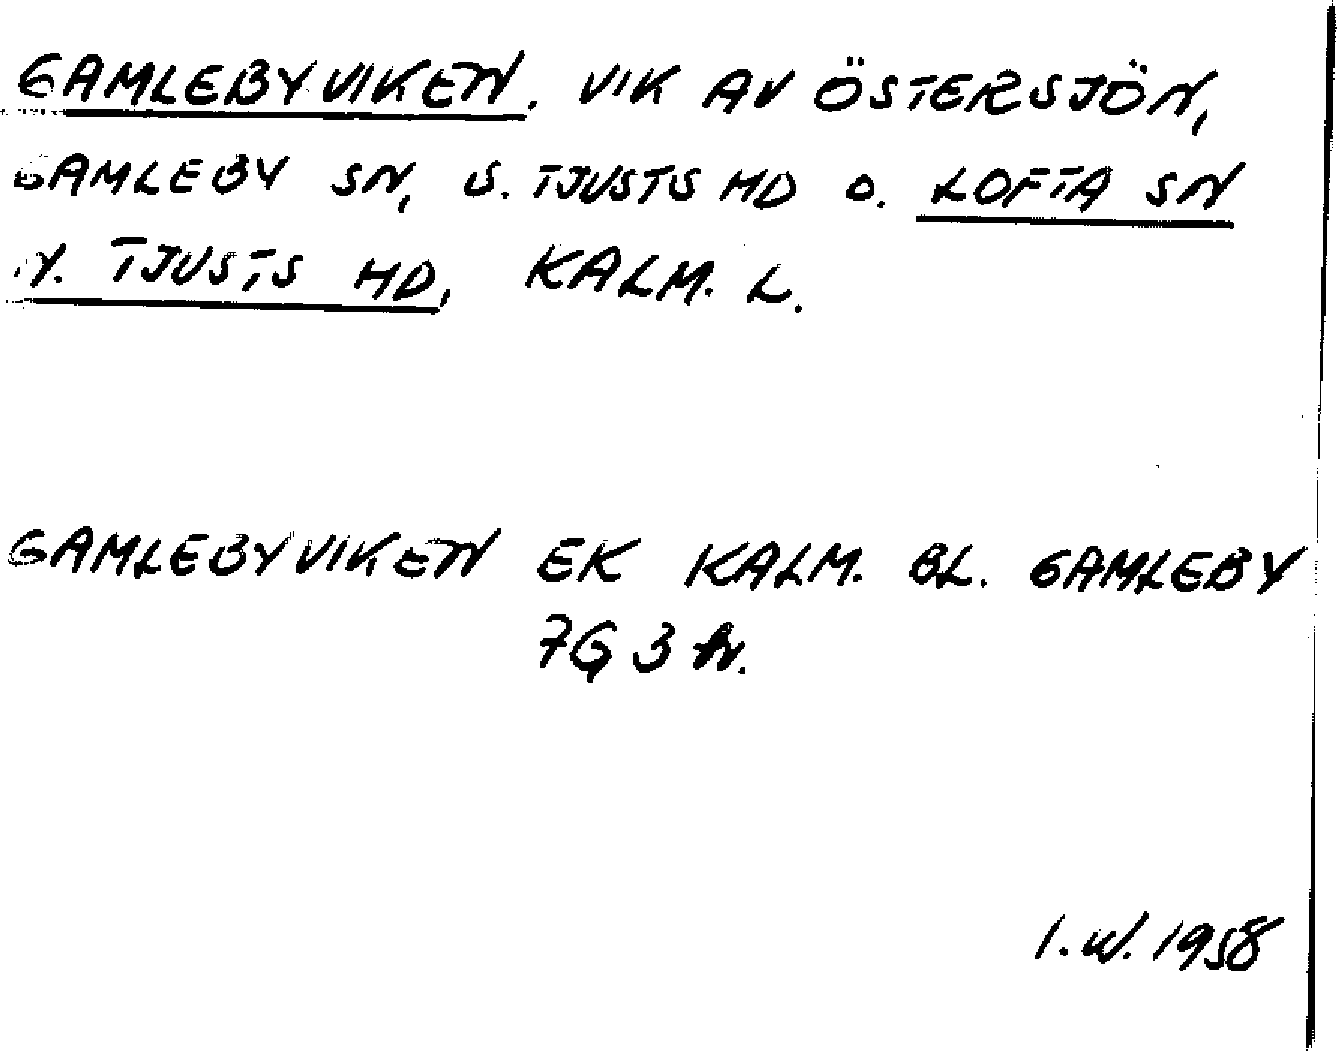 GAMLEBYVIKEN. VIK AV ÖSTERSJÖN,
GAMLEBY SN, S. TJUSTS HD O. LOFTA SN
N. TJUSTS HD, KALM. L.
GAMLEBYVIKEN EK KALM. BL. GAMLEBY
7G 3 h.
I. W. 1958